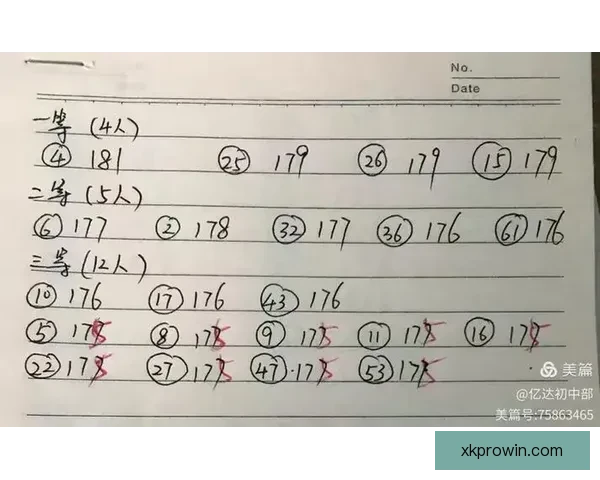 No.
Date
一等（4人）
④ 181 ㉕ 179 ㉖ 179 ⑮ 179
二等（5人）
⑥ 177 ② 178 ㉜ 177 ㊱ 176 61 176
三等（12人）
⑩ 176 ⑰ 176 ㊸ 176
⑤ 175 ⑧ 175 ⑨ 175 ⑪ 175 ⑯ 175
㉒ 175 ㉗ 175 ㊼ 175 53 175
美篇
@亿达初中部
美篇号:75863465
xkprowin.com